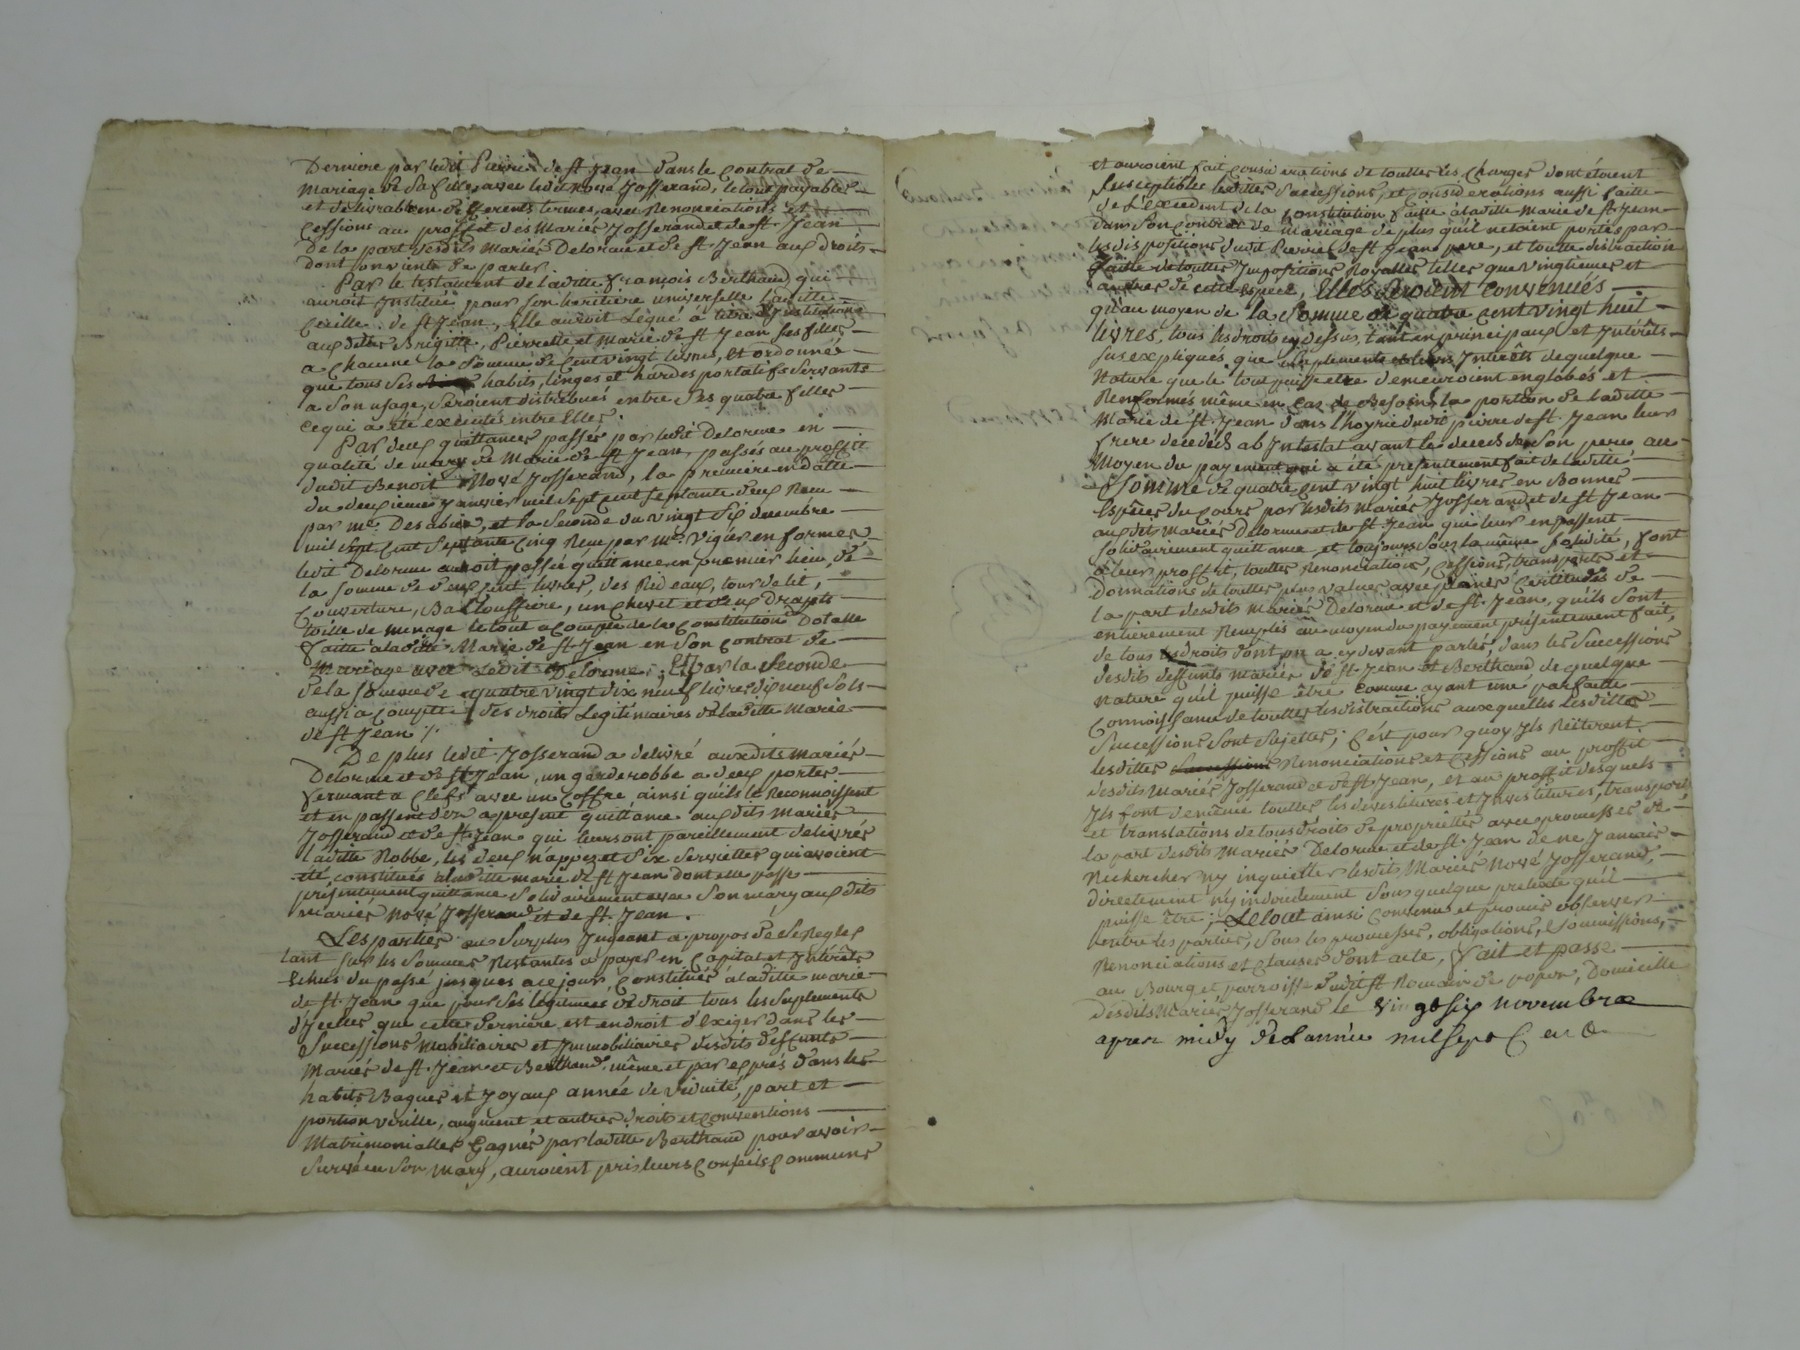 Derniere par ledit Pierre de St Jean dans le Contrat de
Mariage de Sa fille avec ledit Nové Josserand, le tout payables
et delivrables en differents termes, avec Renonciations et
Cessions au proffit des Mariés Josserand et de St Jean
de la part desdits Mariés Delorme et de St Jean aux droits
dont on vient de parler
Par le testament de laditte françoise Berthaud qui
auroit Instituée pour son heritiere universelle laditte
de St Jean, Elle auroit Legué a titre d'Institution
aux dittes Brigitte, Pierrette et Marie de St Jean ses filles
a Chacune la Somme de Cent vingt livres, Et ordonné
que tous ses habits, linges et hardes portatifs servants
a Son usage, Seroient distribués entre Ses quatre filles
ce qui a été executé entre Elles.
Par deux quittances passées par ledit Delorme en
qualité de mary de Marie de St Jean, passés au proffit
dudit Benoit Nové Josserand, la premiere en datte
du deuxieme Janvier mil Sept Cent Septante deux Recu
par Me. et la Seconde du vingt Six decembre
mil Sept Cent Septante Cinq Recu par Me. Vigier en formes
ledit Delorme auroit passé quittance en premier lieu, de
la Somme de deux Cent livres, des Rideaux, tour de lit,
Couverture, Baltouffiere, un Chevet et deux Draps
toille de menage le tout a Compte de la Constitution Dotalle
faitte a laditte Marie de St Jean en Son Contrat de
Mariage avec Ledit Delorme; Et par la Seconde
de la Somme de quatre vingt dix neuf livres dix neuf Sols
aussi a Compte des droits Legitimaires de laditte Marie
de St Jean /.
De plus ledit Josserand a delivré auxdits Mariés
Delorme et de St Jean, un garderobbe a deux portes
fermant a Clefs avec un Coffre ainsi qu'ils le Reconnoissent
et en passent des a present quittance aux dits Mariés
Josserand et de St Jean qui leurs ont pareillement delivrés
laditte Robbe, les deux nappes et Six Serviettes qui avoient
été constitués a laditte marie de St Jean dont elle passe
présentement quittance Solidairement avec Son mary aux dits
mariés Nové Josserand et de St Jean.
Les parties au Surplus Jugeant a propos de Se Regler
tant Sur les Sommes Restantes a payer en Capital et Interêts
Echus du passé jusques a ce jour, Constitués a laditte marie
de St Jean que pour Ses legitimes de droit tous les Suplements
d'Jcelles que cette derniere est en droit d'Exiger dans les
Successions Mobiliaires et Immobiliaires desdits deffunts
Mariés de St Jean et Berthaud, même et par exprés dans les
habits Bagues et Joyaux année de viduité, part et
portion virille, augment et autres droits et Conventions
Matrimonialles Gagnés par laditte Berthaud pour avoir
Survécu Son Mary, auroient pris leurs Conseils Communs
et auroient fait Considerations de touttes les Charges dont étoient
Susceptibles lesdittes Successions, et Considerations aussi faitte
de L'excedent de la Constitution faitte a laditte Marie de St Jean
dans Son Contrat de mariage de plus qu'il n'etoient portés par
les dispositions dudit Pierre de St Jean pere, et toutte distraction
faitte de touttes Impositions Royalles telles que vingtiemes et
autres de cette espece, Elles Seroient Convenués
qu'au moyen de la Somme de quatre cent vingt huit
livres, tous les droits cy dessus, tant en principaux et Interêts
Sus expliqués, que Suplements et leurs Interêts de quelque
Nature que le tout puisse etre demeuroient englobés et
Renfermés même en Cas de Besoin la portion de laditte
Marie de St Jean dans l'hoyrie dudit pierre de St Jean leur
frere decedé ab Intestat avant le deceds de Son pere au
Moyen du payement qui a été presentement fait de laditte
Somme de quatre Cent vingt huit livres en Bonnes
Especes du Cours par lesdits Mariés Josserand et de St Jean
aux dits Mariés Delorme et de St Jean qui leur en passent
Solidairement quittance et toujours Sous la même Solidité, font
a leur proffit, touttes Renonciations, Cessions, transports et
Donnations de touttes plus values avec
la part desdits Mariés Delorme et de St Jean, qu'ils Sont
entierement Remplis au moyen du payement présentement fait,
de tous les droits dont on a cy devant parlés, dans les Successions
desdits deffunts mariés de St Jean et Berthaud de quelque
Nature qu'il puisse être Comme ayant une parfaitte
Connoissance de touttes les distractions auxquelles lesdittes
Successions Sont Sujettes; C'est pour quoy Ils Reiterent
lesdittes Renonciations et Cessions au proffit
desdits Mariés Josserand et de St Jean, et au proffit desquels
Ils font de même touttes les devestitures et Investitures, transports
et translations de tous droits de proprietés avec promesses de
la part desdits Mariés Delorme et de St Jean de ne Jamais
Rechercher ny inquietter lesdits Mariés Nové Josserand,
directement ny indirectement Sous quelque pretexte qu'il
puisse être; Le tout ainsi Convenu et promis observer
entre les parties, Sous les promesses, obligations, Soumissions,
Renonciations et Clauses dont acte, fait et passé
au Bourg et parroisse dudit St Romain de popey, Domicille
desdits Mariés Josserand le vingt six novembre
apres midy de L'année mil sept Cent